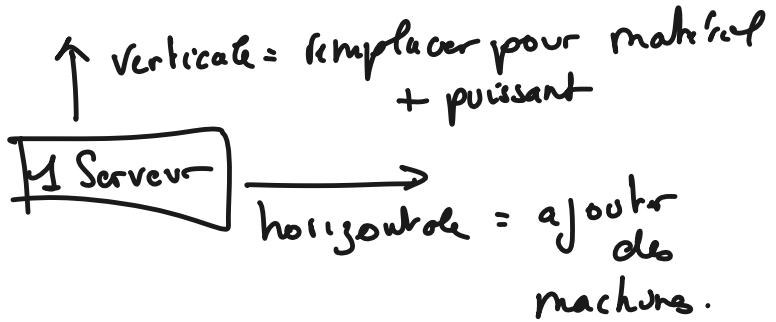 verticale = remplacer pour matériel
+ puissant
1 Server
horizontale = ajouter
des
machines.